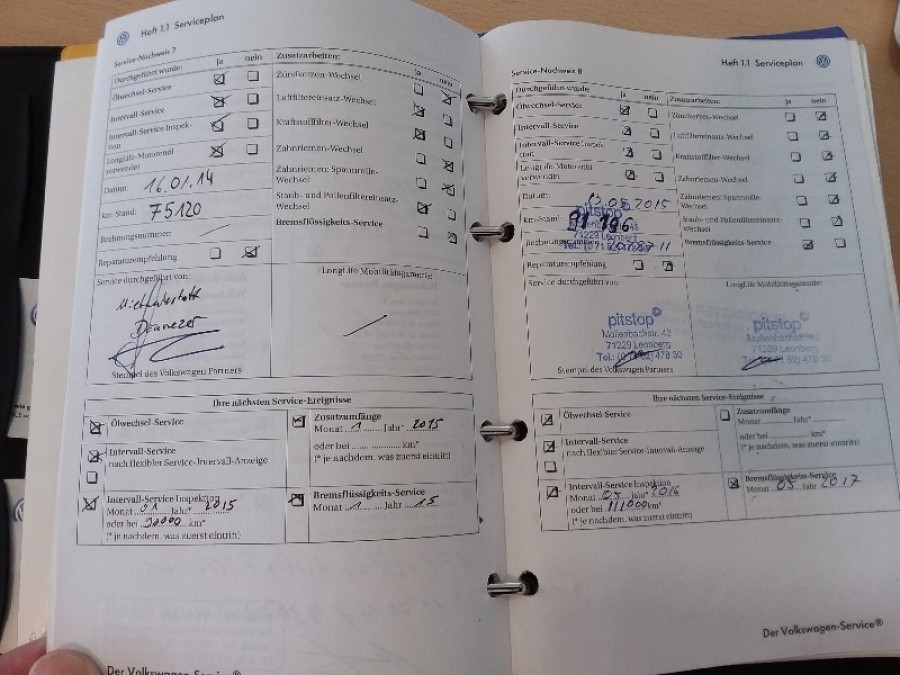 Heft 1.1 Serviceplan
Service-Nachweis 7
Durchgeführt wurde: ja nein
Ölwechsel-Service
Intervall-Service
Intervall-Service Inspek-
tion
LongLife-Motorenöl
verwendet
Datum: 16.01.14
km-Stand: 75120
Rechnungsnummer:
Reparaturempfehlung
Zusatzarbeiten: ja nein
Zündkerzen-Wechsel
Luftfiltereinsatz-Wechsel
Kraftstofffilter-Wechsel
Zahnriemen-Wechsel
Zahnriemen-Spannrolle-
Wechsel
Staub- und Pollenfiltereinsatz-
Wechsel
Bremsflüssigkeits-Service
Service durchgeführt von:
Mietwerkstatt
Stempel des Volkswagen Partners
LongLife Mobilitätsgarantie:
Ihre nächsten Service-Ereignisse
Ölwechsel-Service
Intervall-Service
nach flexibler Service-Intervall-Anzeige
Intervall-Service Inspektion
Monat 01 Jahr* 2015
oder bei 90000 km*
(* je nachdem, was zuerst eintritt)
Zusatzumfänge
Monat 1 Jahr* 2015
oder bei ........ km*
(* je nachdem, was zuerst eintritt)
Bremsflüssigkeits-Service
Monat 1 Jahr 15
Der Volkswagen-Service®
Heft 1.1 Serviceplan
Service-Nachweis 8
Durchgeführt wurde: ja nein
Ölwechsel-Service
Intervall-Service
Intervall-Service Inspek-
tion
LongLife-Motorenöl
verwendet
Datum: 2015
km-Stand:
pitstop
71229 Leonberg
Rechnungsnummer:
Reparaturempfehlung
Zusatzarbeiten: ja nein
Zündkerzen-Wechsel
Luftfiltereinsatz-Wechsel
Kraftstofffilter-Wechsel
Zahnriemen-Wechsel
Zahnriemen-Spannrolle-
Wechsel
Staub- und Pollenfiltereinsatz-
Wechsel
Bremsflüssigkeits-Service
Service durchgeführt von:
pitstop
Mollenbachstr. 43
71229 Leonberg
Stempel des Volkswagen Partners
LongLife Mobilitätsgarantie:
pitstop
Mollenbachstr.
71229 Leonberg
Ihre nächsten Service-Ereignisse
Ölwechsel-Service
Intervall-Service
nach flexibler Service-Intervall-Anzeige
Intervall-Service Inspektion
Monat 05 Jahr* 2016
oder bei 111000 km*
(* je nachdem, was zuerst eintritt)
Zusatzumfänge
Monat ........ Jahr* ........
oder bei ........ km*
(* je nachdem, was zuerst eintritt)
Bremsflüssigkeits-Service
Monat 05 Jahr 2017
Der Volkswagen-Service®